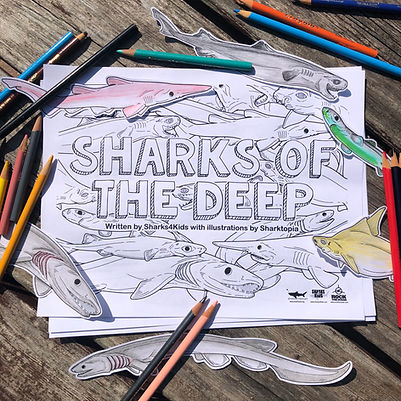 SHARKS OF
THE DEEP
Written by Sharks4Kids with illustrations by Sharktopia